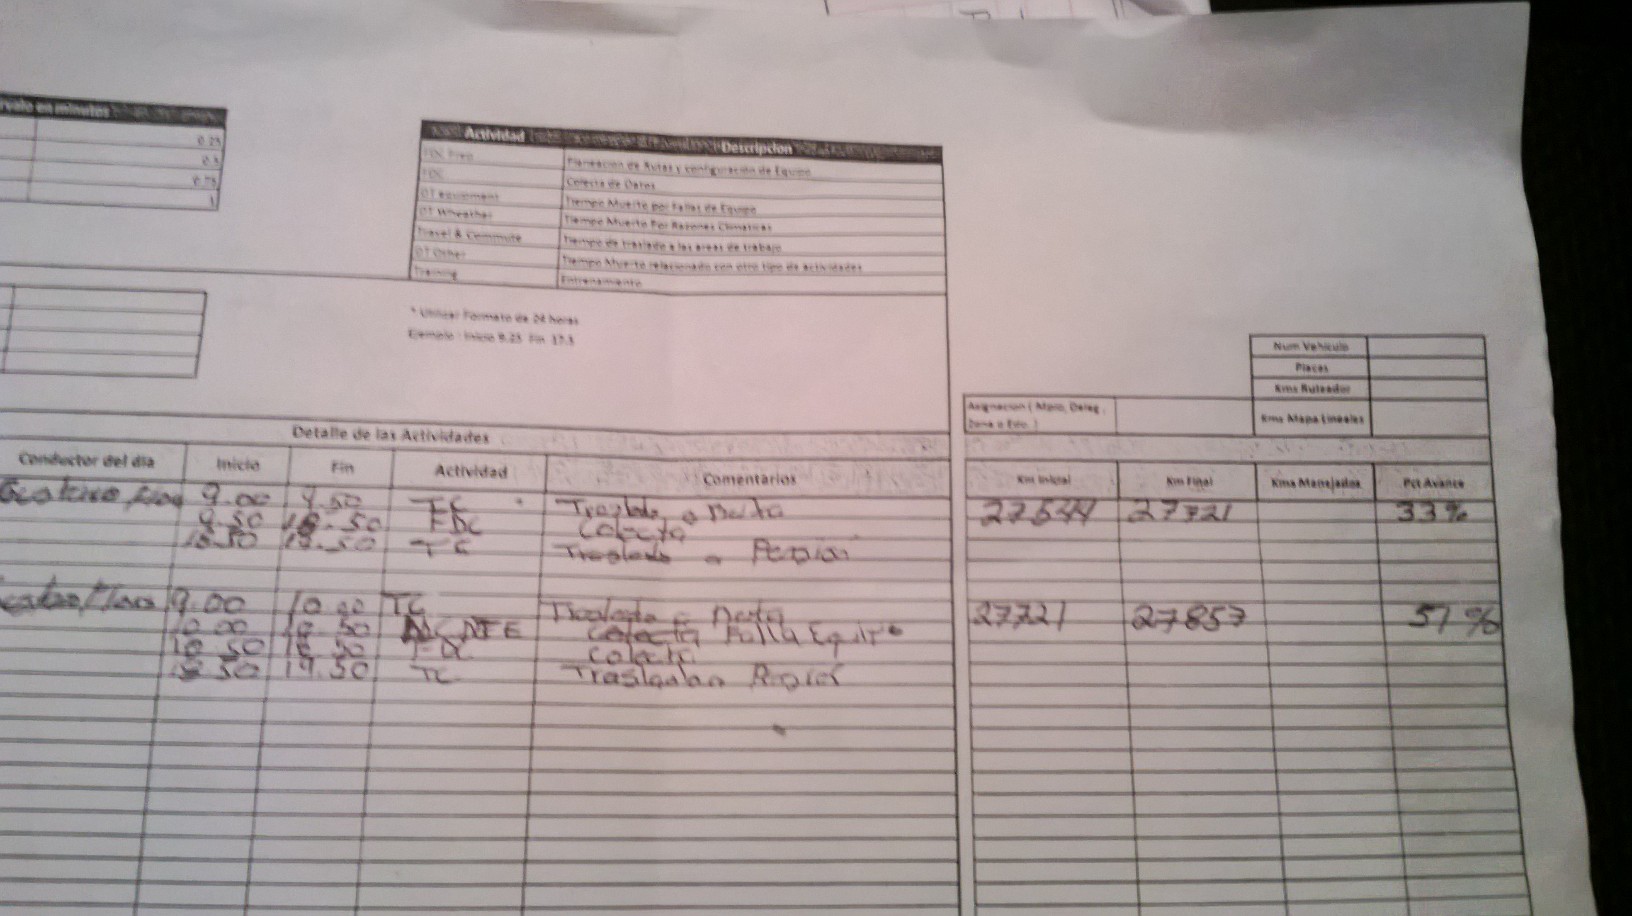 en minutos
0.25
0.5
0.75
1
Actividad Descripcion
FDC Prep Planeacion de Rutas y configuración de Equipo
FDC Colecta de Datos
DT equipment Tiempo Muerto por Fallas de Equipo
DT Wheather Tiempo Muerto Por Razones Climaticas
Travel & Commute Tiempo de traslado a las areas de trabajo
DT Other Tiempo Muerto relacionado con otro tipo de actividades
Training Entrenamiento
* Utilizar Formato de 24 horas
Ejemplo : Inicio 9.25 Fin 17.5
Num Vehiculo
Placas
Kms Ruteador
Kms Mapa Lineales
Asignacion ( Mpio, Deleg ,
Zona o Edo. )
Detalle de las Actividades
Conductor del dia Inicio Fin Actividad Comentarios Km Inicial Km Final Kms Manejados Pct Avance
9.00 9.50 TC Traslado a 27544 27721 33%
9.50 18.50 FDC Colecta
18.50 19.50 TC Traslado a Pension
9.00 10.00 TC Traslado a 27721 27857 51%
10.00 10.50 DTE Falla Equipo
10.50 18.50 FDC Colecta
18.50 19.50 TC Traslado a